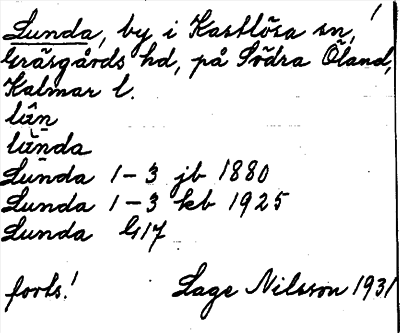 Lunda, by i Kastlösa sn,
Gräsgårds hd, på Södra Öland,
Kalmar l.
Lunda 1-3 jb 1880
Lunda 1-3 kb 1925
Lunda G17
forts! Lage Nilsson 1931